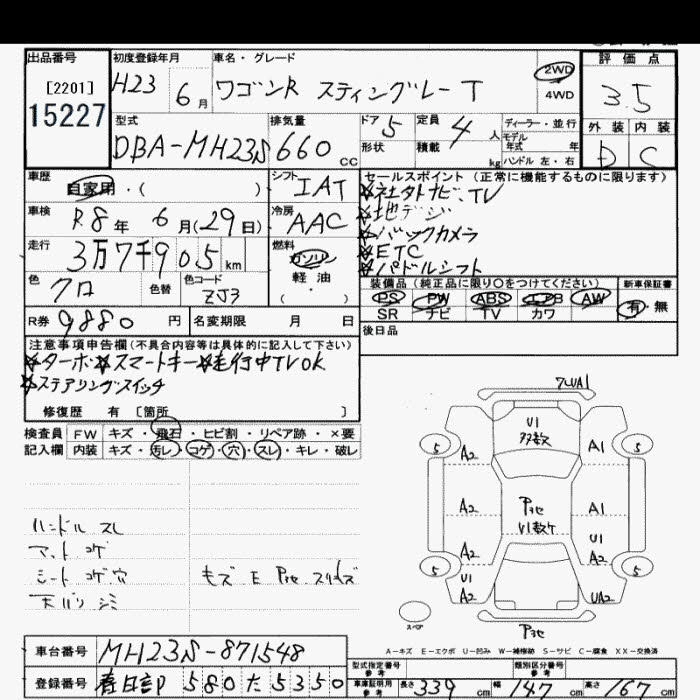 出品番号 初度登録年月 車名・グレード 評価点
[2201] H23 6月 ワゴンR スティングレー T 2WD 3.5
15227 4WD
型式 排気量 ドア 5 定員 4人 ディーラー・並行 外装 内装
モデル年式 年
DBA-MH23S 660cc 形状 積載 kg ハンドル 左・右 D C
車歴 シフト セールスポイント (正常に機能するものに限ります)
自家用・( ) IAT ☆社外ナビ、TV
☆地デジ
車検 R8年 6月(29日) 冷房 AAC ☆バックカメラ
走行 3万7千905km 燃料 ガソリン ☆ETC
軽油 ☆パドルシフト
( ・ )
色 クロ 色替 色コード ZJ3 装備品 (純正品に限り○をつけてください) 新車保証書
PS PW ABS エアB AW 有・無
SR ナビ TV カワ
R券 9880円 名変期限 月 日 後日品
注意事項申告欄 (不具合内容等は具体的に記入して下さい)
☆ターボ☆スマートキー☆走行中TVOK
☆ステアリングスイッチ
修復歴 有 [箇所 ]
検査員 FW キズ・飛石・ヒビ割・リペア跡・×要
記入欄 内装 キズ・汚レ・コゲ・穴・スレ・キレ・破レ
ハンドル スレ
マット コゲ
シート コゲ穴
天バリ シミ
U1
多数
5 A2 A1 5
A2 A1
U1
A2 A2
5 5
U1
A2 UA2
スペア
A-キズ E-エクボ U-凹み W-補修跡 S-サビ C-腐食 XX-交換済
車台番号 MH23S-871548
型式指定番号 参考 類別区分番号 参考
登録番号 春日部 580 た 5350 車庫証明用 参考 長さ 339cm 幅 147cm 高さ 167cm